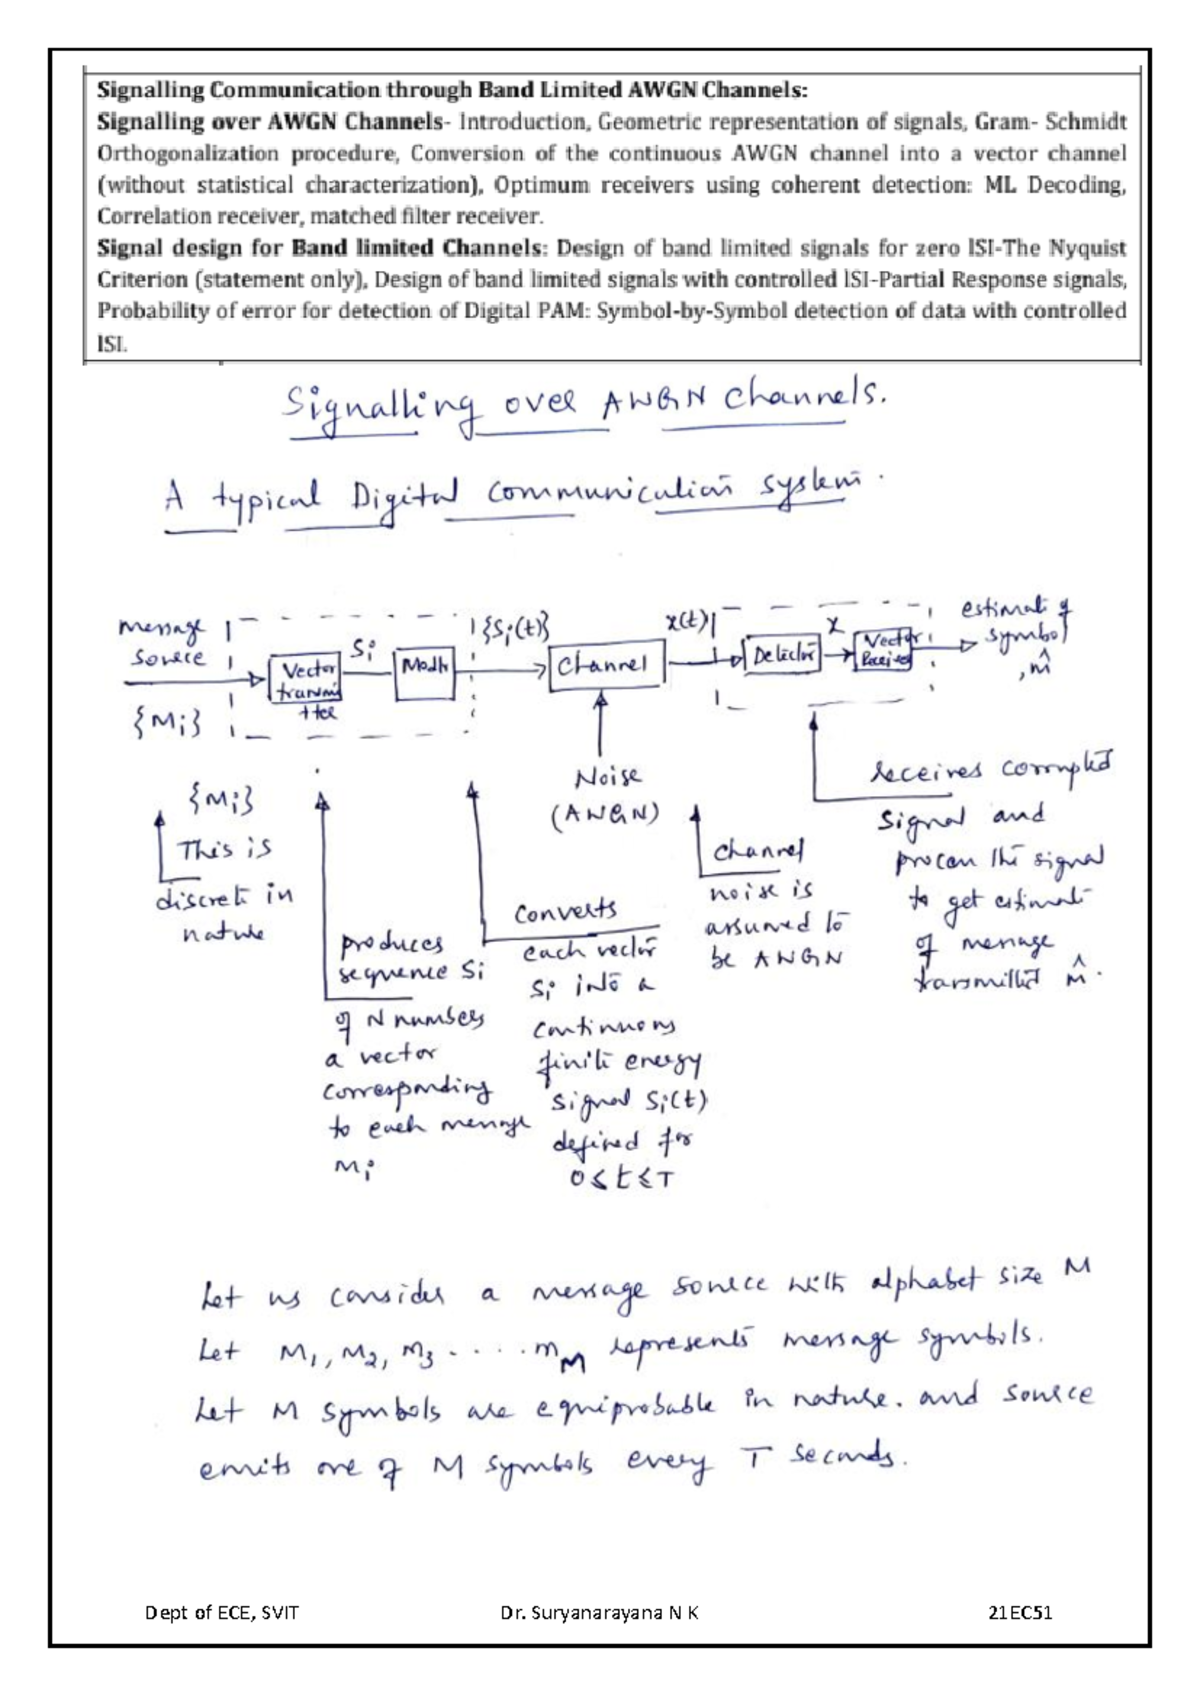 Signalling Communication through Band Limited AWGN Channels:
Signalling over AWGN Channels- Introduction, Geometric representation of signals, Gram- Schmidt
Orthogonalization procedure, Conversion of the continuous AWGN channel into a vector channel
(without statistical characterization), Optimum receivers using coherent detection: ML Decoding,
Correlation receiver, matched filter receiver.
Signal design for Band limited Channels: Design of band limited signals for zero ISI-The Nyquist
Criterion (statement only), Design of band limited signals with controlled ISI-Partial Response signals,
Probability of error for detection of Digital PAM: Symbol-by-Symbol detection of data with controlled
ISI.
Signalling over AWGN Channels.
A typical Digital communication system.
message
source
{Mi}
Vector
transmi
tter
Si
{Si(t)}
Channel
Noise
(AWGN)
x(t)
Detector
x
Vector
estimate of
symbol
, m̂
{Mi}
This is
discrete in
nature
produces
sequence Si
of N numbers
a vector
corresponding
to each message
Mi
Converts
each vector
Si into a
continuous
finite energy
signal Si(t)
defined for
0≤t≤T
channel
noise is
assumed to
be AWGN
receives corrupted
signal and
process the signal
to get estimate
of message
transmitted m̂.
Let us consider a message source with alphabet size M
Let M1, M2, M3 - . . . . mM represents message symbols.
Let M symbols are equiprobable in nature. and source
emits one of M symbols every T seconds.
Dept of ECE, SVIT Dr. Suryanarayana N K 21EC51